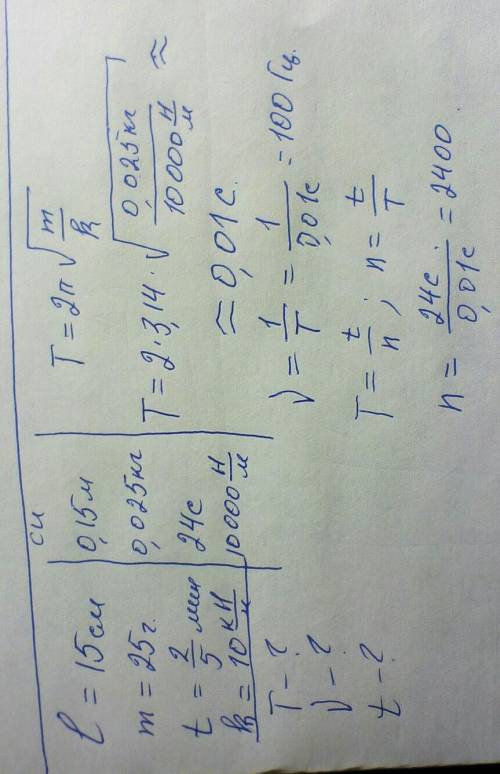 СИ
ℓ = 15 см | 0,15 м
m = 25 г. | 0,025 кг
t = 2/5 мин | 24 с
k = 10 кН/м | 10 000 Н/м
T - ?
ν - ?
t - ?
T = 2π√(m/k)
T = 2·3,14·√(0,025 кг / 10 000 Н/м) ≈
≈ 0,01 с.
ν = 1/T = 1/0,01с = 100 Гц.
T = t/n ; n = t/T
n = 24с/0,01с = 2400.